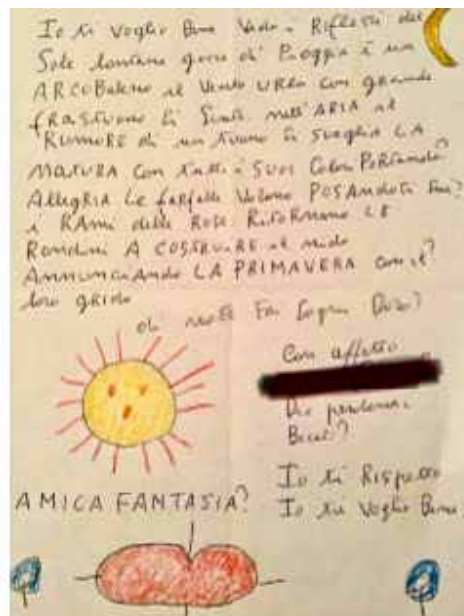 Io ti voglio Bene Vedo i Riflessi del
Sole lontano gocce di Pioggia è un
ARCOBaleno il Vento URla con grande
fRAStuono Si Sente nell'ARIA il
RUMORE di un tuono Si sveglia LA
NATURA con tutti i Suoi Colori PORtando
AllegRIA Le farfalle Volano POSAndosi
i RAmi delle Rose RitoRnano LE
Rondini A COSTRUIRE il nido
ANNUNCIANDO LA PRIMAVERA con il?
loro grido
di notte Fai Sogni
Con affetto
Io ti Rispetto
AMICA FANTASIA?
Io ti Voglio Bene